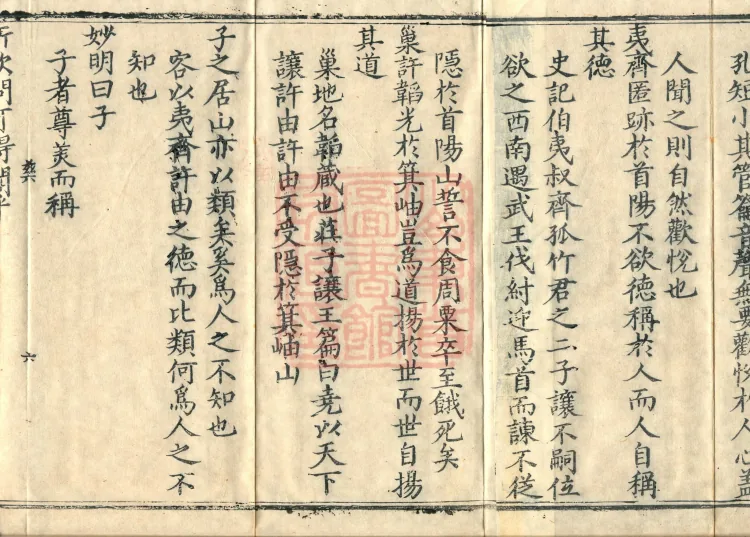 孔短小其管籥音聲無要歡悅於人心蓋
人聞之則自然歡悅也
夷齊匿跡於首陽不欲德稱於人而人自稱
其德
史記伯夷叔齊孤竹君之二子讓不嗣位
欲之西南遇武王伐紂迎馬首而諫不從
隱於首陽山誓不食周粟卒至餓死矣
巢許韜光於箕岫豈爲道揚於世而世自揚
其道
巢地名韜藏也莊子讓王篇曰堯以天下
讓許由許由不受隱於箕岫山
子之居山亦以類矣奚爲人之不知也
容以夷齊許由之德而比類何爲人之不
知也
妙明曰子
子者尊美而稱
六